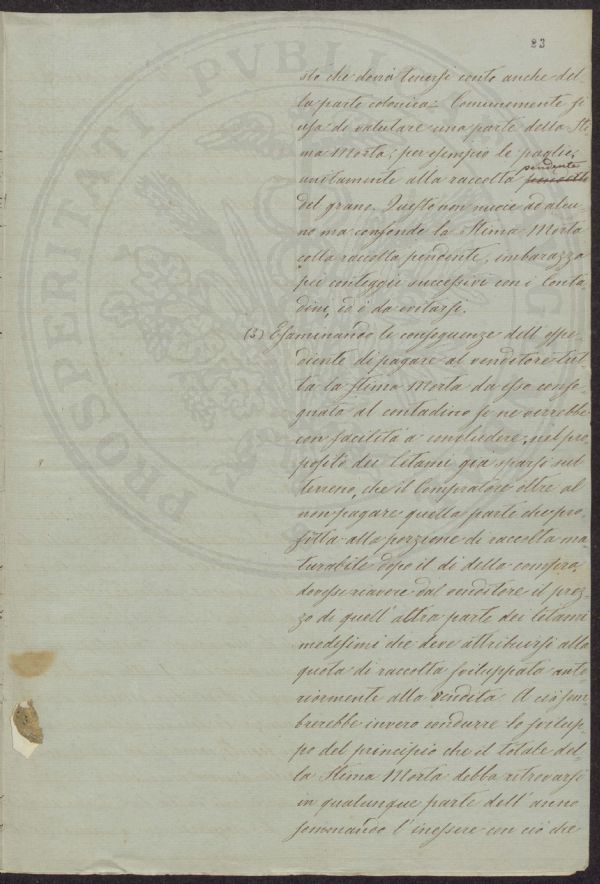 23
sto che dovrà tenersi conto anche del-
la parte colonica. Comunemente si
usa di valutare una parte della Sti-
ma Morta; per esempio le paglie,
pendente
unitamente alla raccolta
del grano. Questo non nuoce ad alcu
no ma confonde la Stima Morta
colla raccolta pendente, imbarazza
pei conteggi successivi con i Conta
dini, ed è da evitarsi.
(3) Esaminando le conseguenze dell'espe-
diente di pagare al venditore tut-
ta la stima Morta da esso conse
gnata al contadino se ne verrebbe
con facilità a concludere, nel pro
posito dei letami già sparsi sul
terreno, che il Compratore oltre al
non pagare quella parte che pro
fitta alla porzione di raccolta ma
turabile dopo il dì della compra,
dovesse ricavare dal venditore il prez-
zo di quell'altra parte dei letami
medesimi che deve attribuirsi alla
quota di raccolta sviluppata ante
riormente alla vendita. A ciò sem
brerebbe invero condurre lo svilup-
po del principio che il totale del-
la Stima Morta debba ritrovarsi
in qualunque parte dell'anno
sommando l'inessere con ciò che
PROSPERITATI PVBLICAE